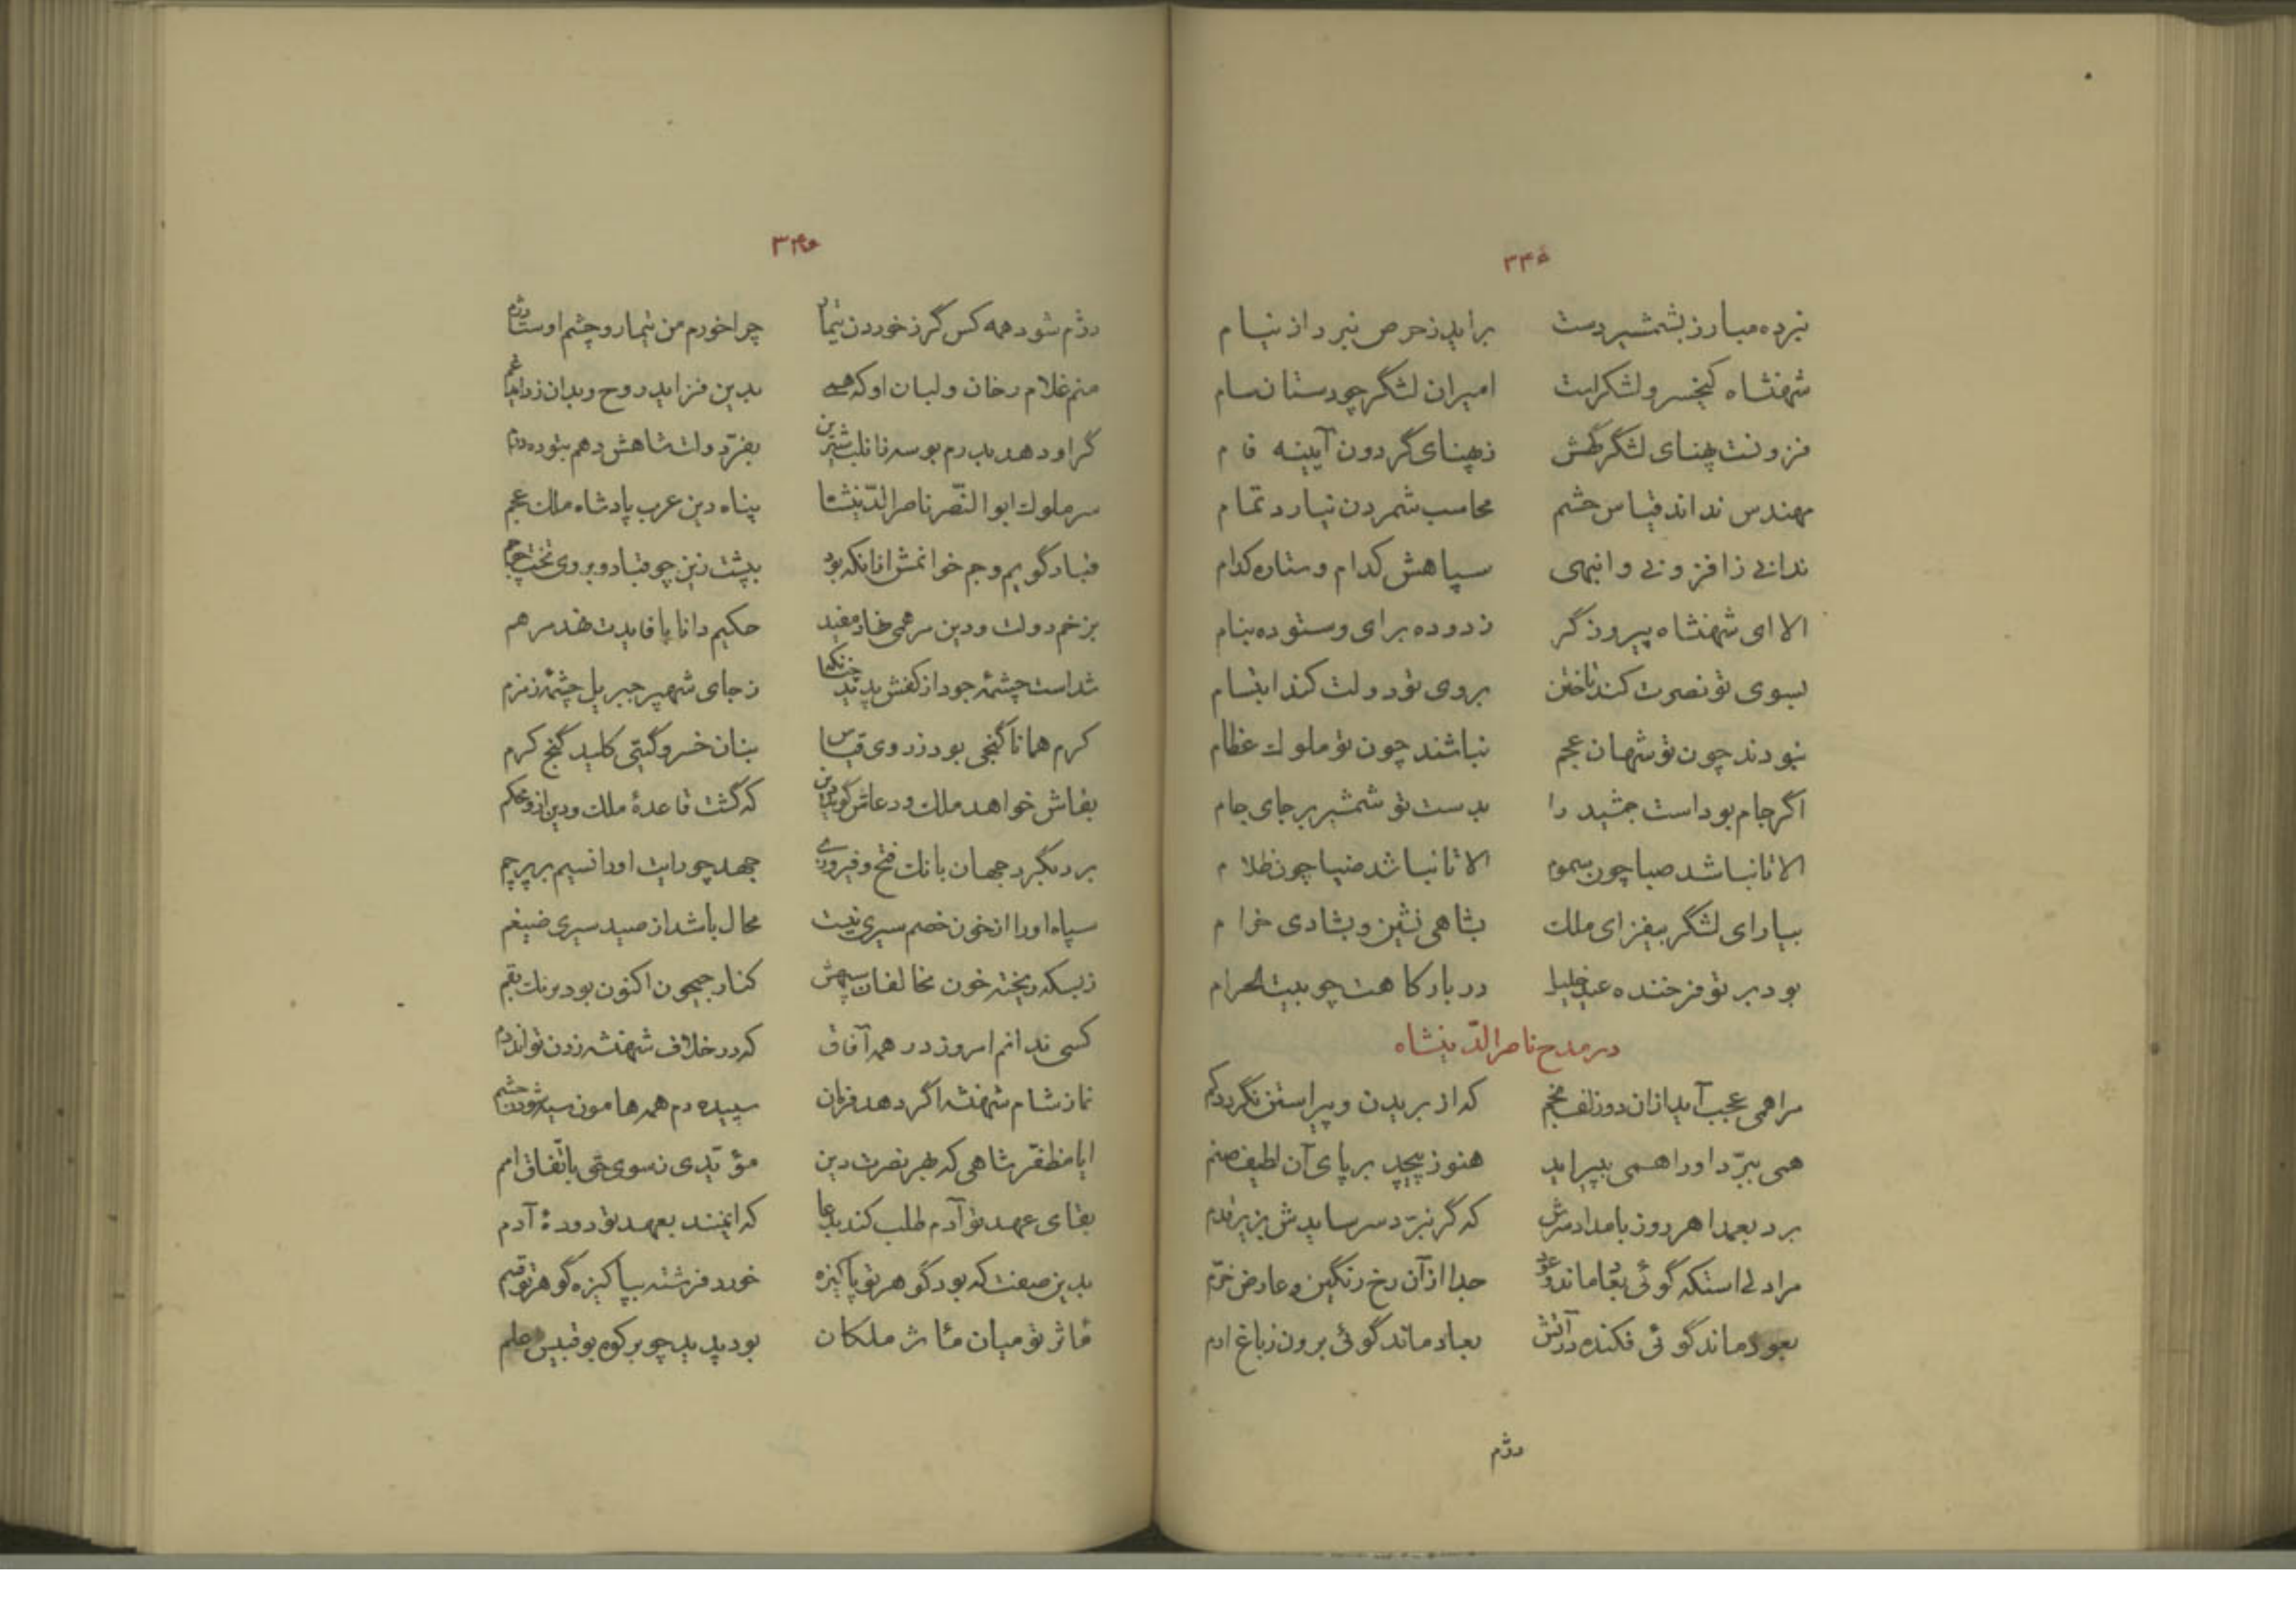 ۳۴۵
نبرده مبارز بشمشیر دست    براید ز حرص نبرد از نیام
شهنشاه کیخسرو لشکرست    امیران لشگر چو دستان سام
فزونست پهنای لشگرگهش    ز پهنای گردون آیینه فام
مهندس نداند قیاس حشم    محاسب شمردن نیارد تمام
ندانی ز افزونی و انبهی    سپاهش کدام و ستاره کدام
الا ای شهنشاه پیروزگر    زدوده برای و ستوده بنام
بسوی تو نصرت کند تاختن    بروی تو دولت کند ابتسام
نبودند چون تو شهان عجم    نباشند چون تو ملوک عظام
اگر جام بوداست جمشید را    بدست تو شمشیر بر جای جام
الا تا نباشد صبا چون سموم    الا تا نباشد ضیا چون ظلام
بیارای لشگر بیفزای ملک    بشاهی نشین و بشادی خرام
بود بر تو فرخنده عید خلیل    در بارگاهت چو بیت الحرام
در مدح ناصرالدینشاه
مرا همی عجب آید ازان دو زلف بخم    که از بریدن و پیراستن نگردد کم
همی ببرّد اورا همی بپیراید    هنوز پیچد بر پای آن لطیف صنم
برد بعمدا هر روز بامداد سرش    که گر نبرّد سر سایدش بزیر قدم
مرا دلی استکه گوئی بقا ماند و عود    جدا از آن رخ رنگین و عارض خرّم
بعود ماند گوئی فکنده در آتش    بعاد ماند گوئی برون ز باغ ارم
دژم
۳۴۶
دژم شود همه کس گر ز خوردن تیمار    چرا خورم من تیمار و چشم اوست دژم
منم غلام رخان و لبان او که همی    بدین فزاید روح و بدان زداید غم
گر او دهد بدرم بوسه زانلب شیرین    بفرّ دولت شاهش دهم بتوده درم
سر ملوک ابوالنّصر ناصرالدّینشاه    پناه دین عرب پادشاه ملک عجم
قباد گویم و جم خوانمش ازانکه بود    بپشت زین چو قباد و بروی تخت چو جم
بزخم دولت و دین مرهمی نهاد مفید    حکیم دانا با فایدت نهد مرهم
شداست چشمهٔ جود از کفش پدید چنانکه    ز جای شهپر جبریل چشمهٔ زمزم
کرم همانا گنجی بود ز روی قیاس    بنان خسرو گیتی کلید گنج کرم
بقاش خواهد ملک و دعاش گوید دین    که گشت قاعدهٔ ملک و دین ازو محکم
برد بگرد جهان بانک فتح و فیروزی    جهد چو رایت اورا نسیم بر پرچم
سپاه اورا از خون خصم سیری نیست    محال باشد از صید سیری ضیغم
ز بسکه ریخته خون مخالفان سپهش    کنار جیحون اکنون بود برنک بقم
کسی ندانم امروز در همه آفاق    که در خلاف شهنشه زدن تواند دم
نماز شام شهنشه اگر دهد فرمان    سپیده دم همه هامون سیه شود ز حشم
ایا مظفّر شاهی که بهر نصرت دین    مؤیّدی ز سوی حق باتّفاق امم
بقای عهد تو آدم طلب کند بدعا    که ایمنند بعهد تو دودهٔ آدم
بدین صفت که بود گوهر تو پاکیزه    خورد فرشته بپاکیزه گوهر تو قسم
مآثر تو میان مآثر ملکان    بود پدید چو بر کوه بوقبیس علم